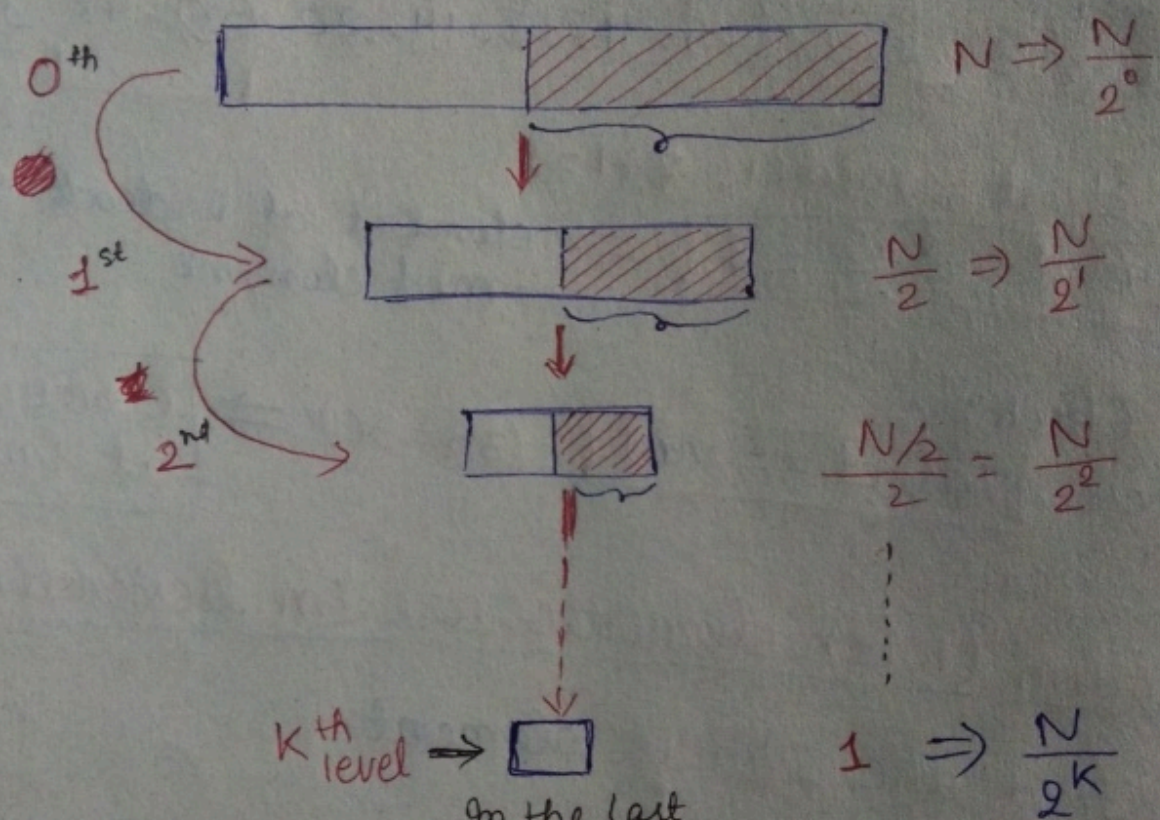 0th N ⇒ N/2^0
1st N/2 ⇒ N/2^1
2nd N/2/2 = N/2^2
Kth level → 1 ⇒ N/2^K
In the last